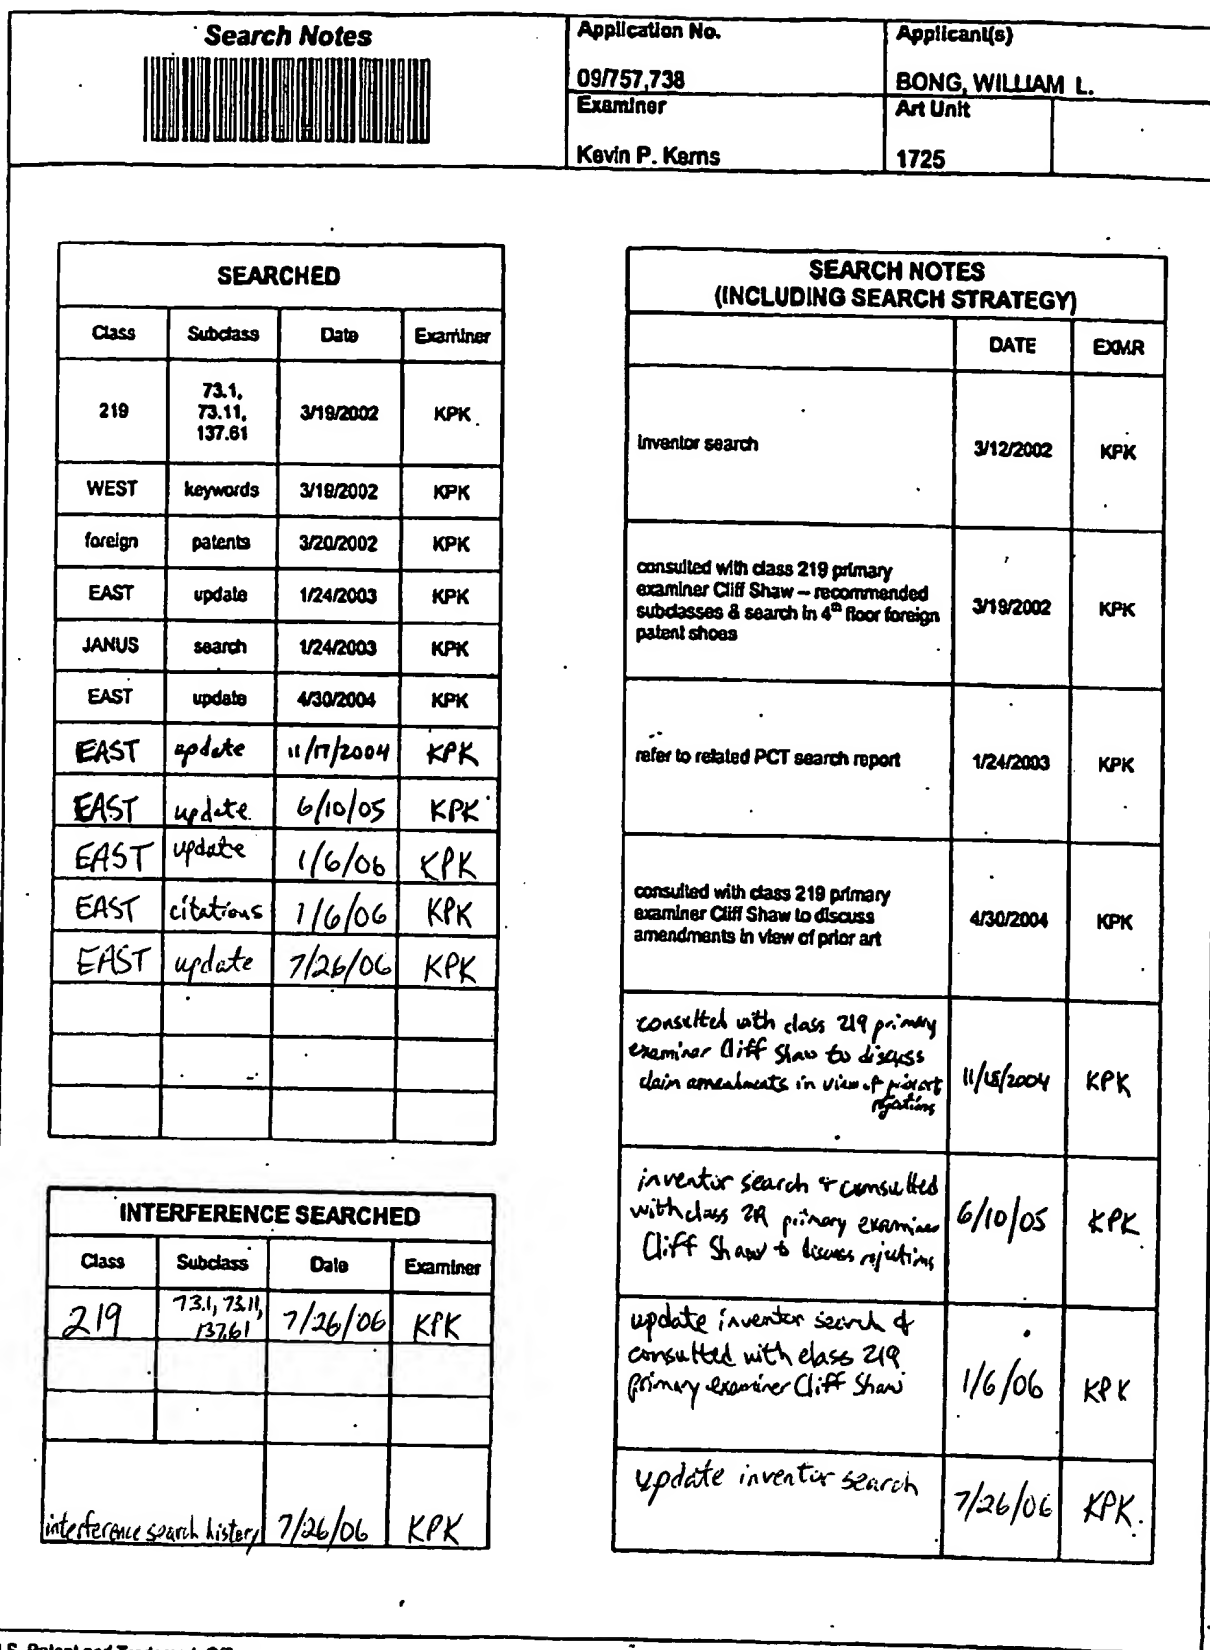 Search Notes
Application No.
Applicant(s)
09/757,738
BONG, WILLIAM L.
Examiner
Art Unit
Kevin P. Kerns
1725
SEARCHED
Class Subclass Date Examiner
219 73.1, 73.11, 137.61 3/19/2002 KPK
WEST keywords 3/19/2002 KPK
foreign patents 3/20/2002 KPK
EAST update 1/24/2003 KPK
JANUS search 1/24/2003 KPK
EAST update 4/30/2004 KPK
EAST update 11/17/2004 KPK
EAST update 6/10/05 KPK
EAST update 1/6/06 KPK
EAST citations 1/6/06 KPK
EAST update 7/26/06 KPK
INTERFERENCE SEARCHED
Class Subclass Date Examiner
219 73.1, 73.11, 137.61 7/26/06 KPK
interference search history 7/26/06 KPK
SEARCH NOTES
(INCLUDING SEARCH STRATEGY)
DATE EXMR
inventor search 3/12/2002 KPK
consulted with class 219 primary
examiner Cliff Shaw – recommended
subclasses & search in 4th floor foreign
patent shoes
3/19/2002 KPK
refer to related PCT search report 1/24/2003 KPK
consulted with class 219 primary
examiner Cliff Shaw to discuss
amendments in view of prior art
4/30/2004 KPK
consulted with class 219 primary
examiner Cliff Shaw to discuss
claim amendments in view of prior art
rejections
KPK
inventor search & consulted
with class 219 primary examiner
Cliff Shaw to discuss rejections
6/10/05 KPK
update inventor search &
consulted with class 219
primary examiner Cliff Shaw
1/6/06 KPK
update inventor search
7/26/06 KPK.